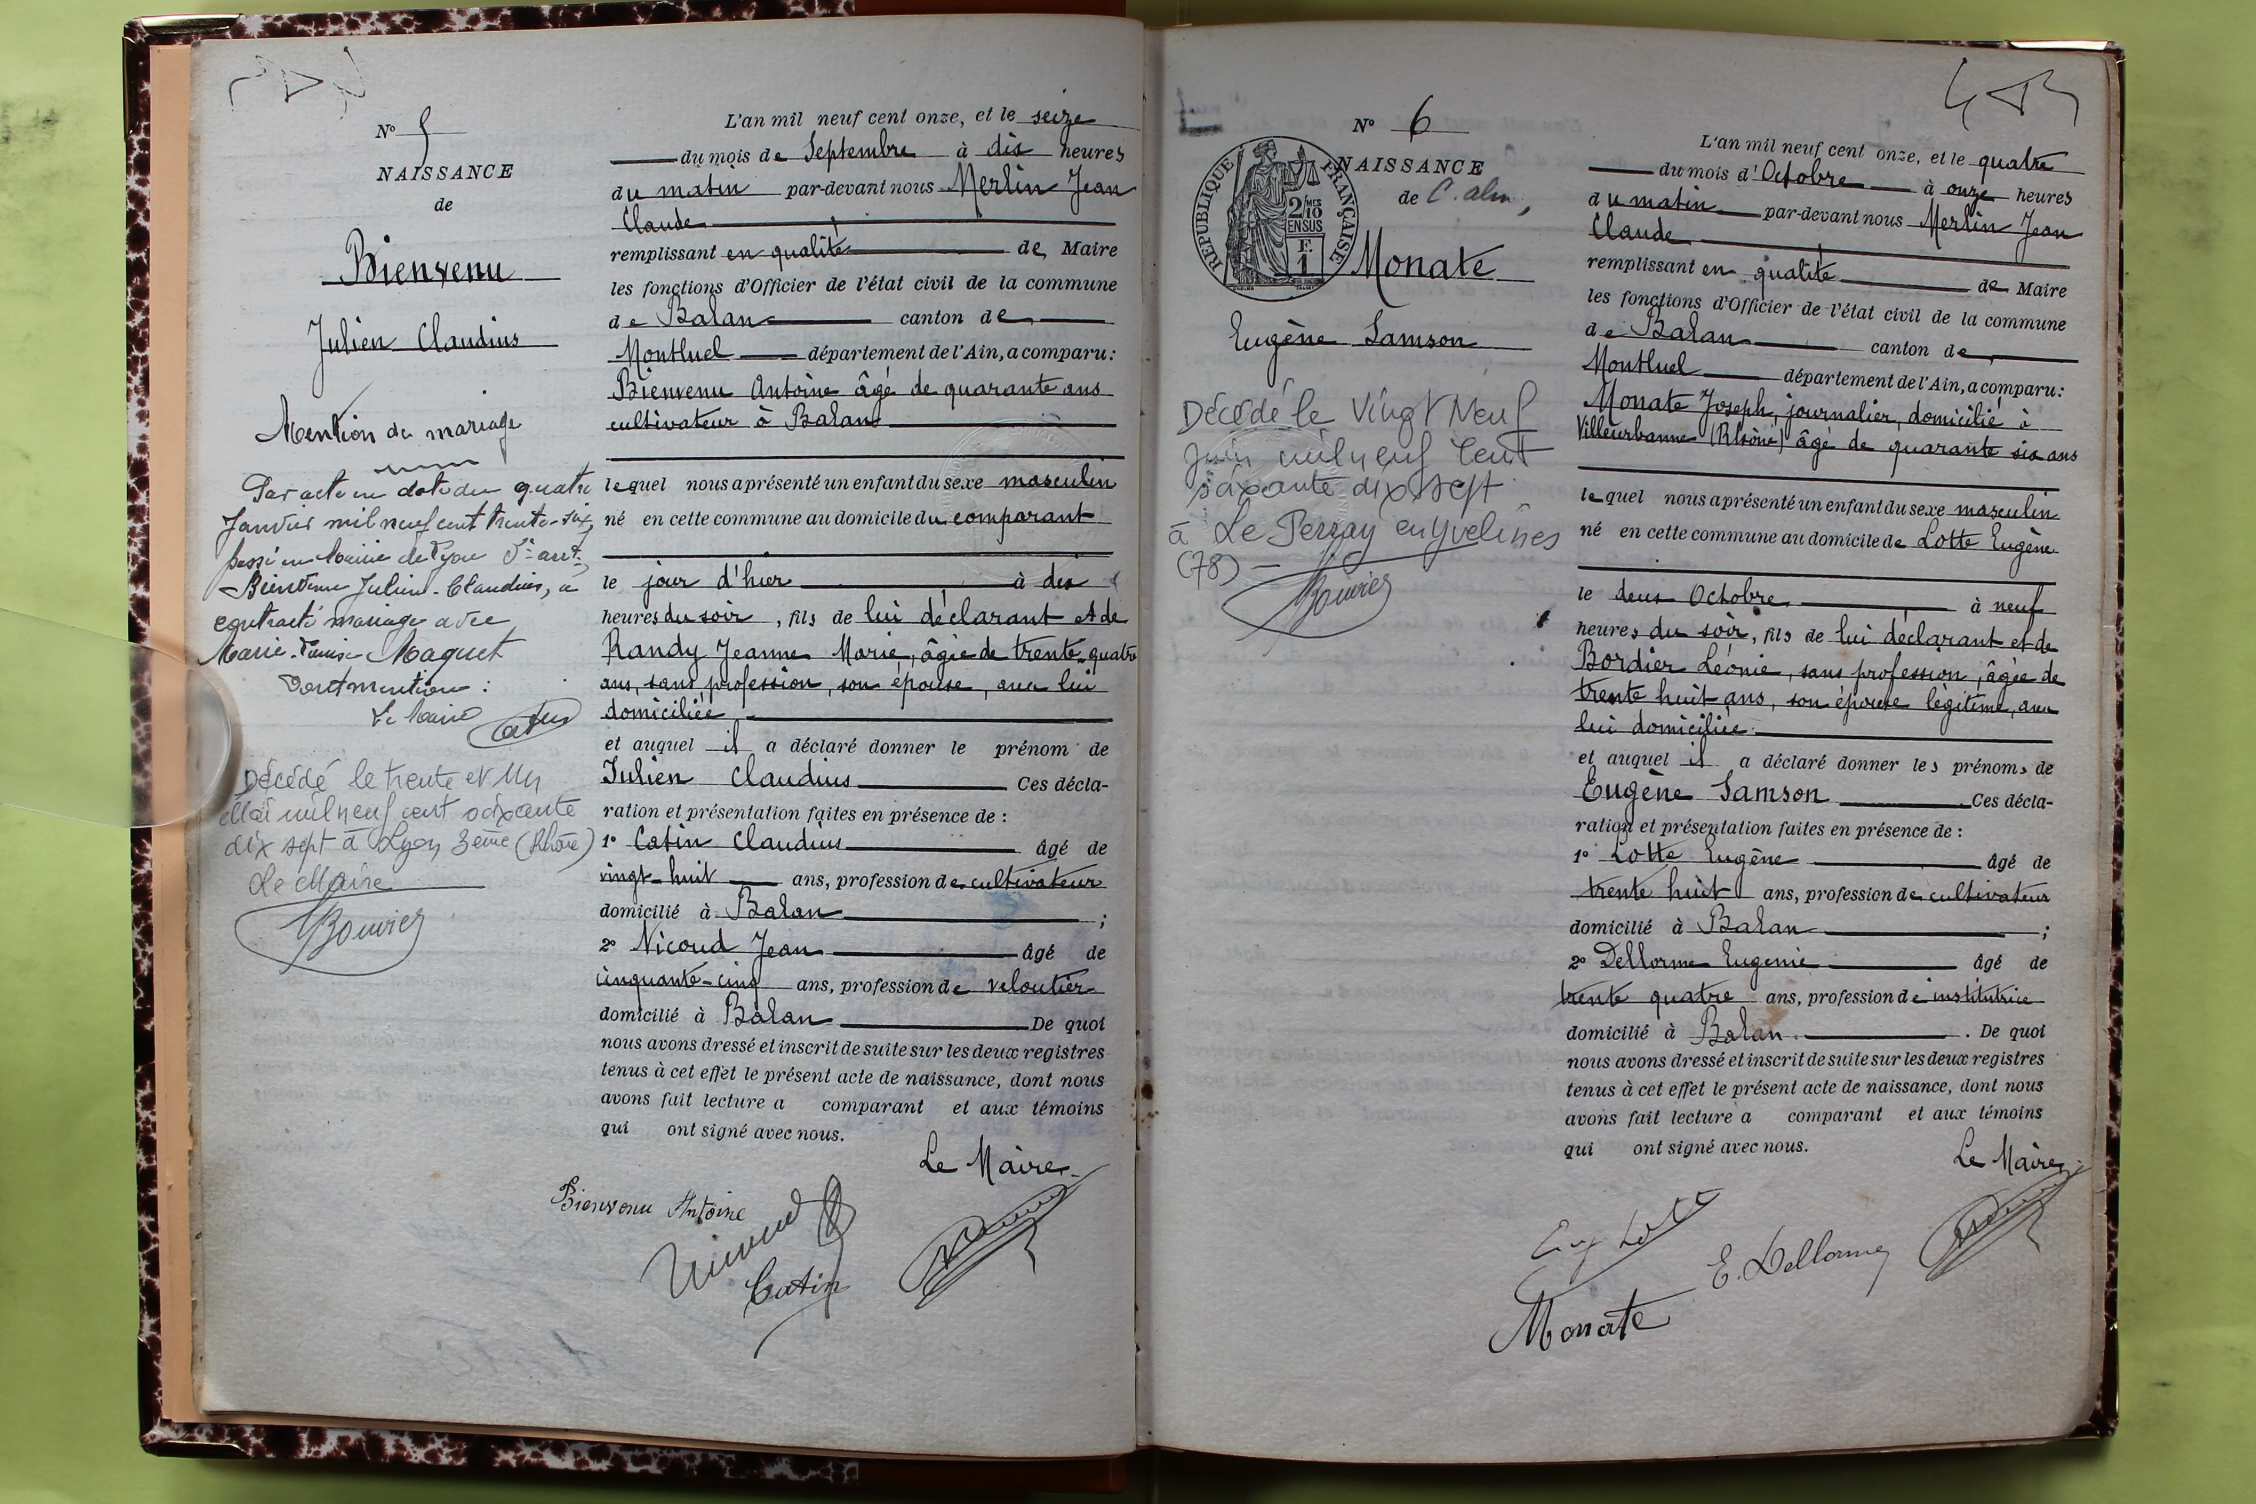 N° 5
NAISSANCE
de
Bienvenu
Julien Claudius
Mention de mariage
Par acte en date du quatre
Janvier mil neuf cent trente-six,
passé en Mairie de Lyon arrt
Bienvenu Julien-Claudius, a
contracté mariage avec
Marie-Louise Maquet
Dont mention :
Le Maire
Décédé le trente et un
Mai mil neuf cent soixante
dix sept à Lyon 3ème (Rhône)
Le Maire
Bouvier
L'an mil neuf cent onze, et le seize
du mois de Septembre à dix heures
du matin par-devant nous Merlin Jean
Claude
remplissant en qualité de Maire
les fonctions d'Officier de l'état civil de la commune
de Balan canton de
Montluel département de l'Ain, a comparu :
Bienvenu Antoine âgé de quarante ans
cultivateur à Balan
lequel nous a présenté un enfant du sexe masculin
né en cette commune au domicile du comparant
le jour d'hier à dix
heures du soir, fils de lui déclarant et de
Randy Jeanne Marie, âgée de trente-quatre
ans, sans profession, son épouse, avec lui
domiciliée
et auquel il a déclaré donner le prénom de
Julien Claudius Ces décla-
ration et présentation faites en présence de :
1° Catin Claudius âgé de
vingt-huit ans, profession de cultivateur
domicilié à Balan ;
2° Nicoud Jean âgé de
cinquante-cinq ans, profession de veloutier
domicilié à Balan De quoi
nous avons dressé et inscrit de suite sur les deux registres
tenus à cet effet le présent acte de naissance, dont nous
avons fait lecture a comparant et aux témoins
qui ont signé avec nous.
Le Maire
Bienvenu Antoine
Nicoud
Catin
N° 6
NAISSANCE
de C. alm,
RÉPUBLIQUE FRANÇAISE
2/10 MES
EN SUS
F.
1
Monate
Eugène Samson
Décédé le Vingt Neuf
Juin mil neuf Cent
soixante dix sept
à Le Perray en Yvelines
(78)
Bouvier
L'an mil neuf cent onze, et le quatre
du mois d'Octobre à onze heures
du matin par-devant nous Merlin Jean
Claude
remplissant en qualité de Maire
les fonctions d'Officier de l'état civil de la commune
de Balan canton de
Montluel département de l'Ain, a comparu :
Monate Joseph, journalier, domicilié à
Villeurbanne (Rhône) âgé de quarante six ans
lequel nous a présenté un enfant du sexe masculin
né en cette commune au domicile de Lotte Eugène
le deux Octobre à neuf
heures du soir, fils de lui déclarant et de
Bordier Léonie, sans profession, âgée de
trente huit ans, son épouse légitime, avec
lui domiciliée
et auquel il a déclaré donner les prénoms de
Eugène Samson Ces décla-
ration et présentation faites en présence de :
1° Lotte Eugène âgé de
trente huit ans, profession de cultivateur
domicilié à Balan ;
2° Dellorme Eugenie âgé de
trente quatre ans, profession de institutrice
domicilié à Balan. De quoi
nous avons dressé et inscrit de suite sur les deux registres
tenus à cet effet le présent acte de naissance, dont nous
avons fait lecture a comparant et aux témoins
qui ont signé avec nous.
Le Maire
Eug Lotte
E. Dellorme
Monate